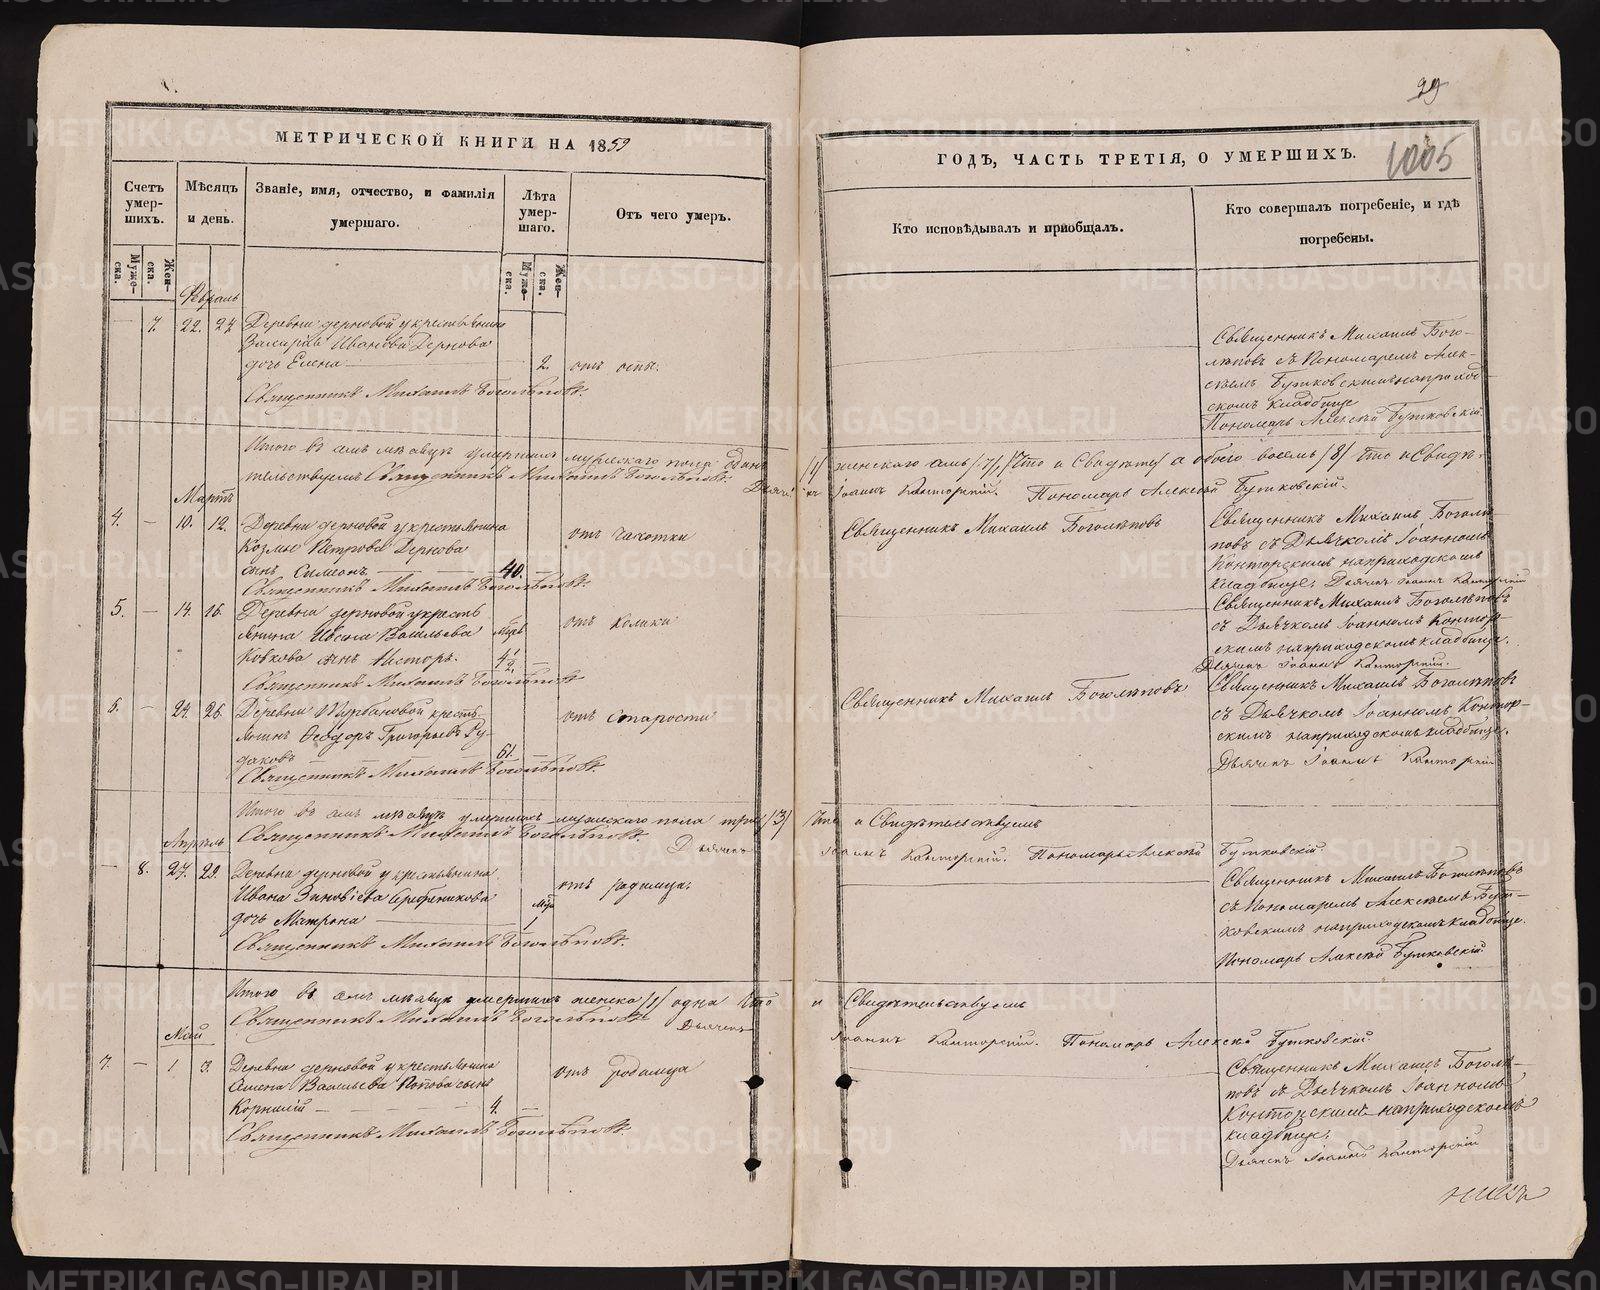 29
МЕТРИЧЕСКОЙ КНИГИ НА 1859
ГОДЪ, ЧАСТЬ ТРЕТІЯ, О УМЕРШИХЪ.
1005
Счетъ умер-шихъ.
Муже-ска.
Жен-ска.
Мѣсяцъ и день.
Званіе, имя, отчество, и фамилія
умершаго.
Лѣта умер-шаго.
Муже-ска.
Жен-ска.
Отъ чего умеръ.
Кто исповѣдывалъ и приобщалъ.
Кто совершалъ погребеніе, и гдѣ
погребены.
Февраль
7. 22. 24. Деревни Дерновой у крестьянина
Ивanова Дернова
дочь Елена 2. отъ оспы.
Священникъ Михаилъ Боголѣповъ.
Священникъ Михаилъ Бого-
лѣповъ съ Пономаремъ Алек-
сѣемъ Бутковскимъ на приход-
скомъ кладбище
Пономарь Алексѣй Бутковскій.
Итого въ семъ мѣсяцѣ умершихъ мужескаго пола одинъ /1/ женскаго семь /7/, а обоего восемь /8/ Что и Свидѣ-
тельствуемъ Священникъ Михаилъ Боголѣповъ.
Дьячекъ Іоаннъ Конторскій. Пономарь Алексѣй Бутковскій.
Мартъ
4. 10. 12. Деревни Дерновой у крестьянина
Козмы Петрова Дернова
сынъ Симеонъ 40. отъ чахотки
Священникъ Михаилъ Боголѣповъ.
Священникъ Михаилъ Боголѣповъ
Священникъ Михаилъ Боголѣ-
повъ съ Дьячкомъ Іоанномъ
Конторскимъ на приходскомъ
кладбище. Дьячекъ Іоаннъ Конторскій
5. 14. 16. Деревни Дерновой у кресть
янина Васильева
сынъ Нисторъ. отъ колики
Священникъ Михаилъ Боголѣповъ
Священникъ Михаилъ Боголѣповъ
съ Дьячкомъ Іоанномъ Контор-
скимъ на приходскомъ кладбище.
Дьячекъ Іоаннъ Конторскій.
6. 24. 26. Деревни Курбановой кресть
янинъ Ѳеодоръ Григорьевъ Ру-
даковъ 61. отъ старости
Священникъ Михаилъ Боголѣповъ.
Священникъ Михаилъ Боголѣповъ
Священникъ Михаилъ Боголѣповъ
съ Дьячкомъ Іоанномъ Контор-
скимъ на приходскомъ кладбище.
Дьячекъ Іоаннъ Конторскій
Итого въ семъ мѣсяцѣ умершихъ мужескаго пола три /3/ Что и Свидѣтельствуемъ
Священникъ Михаилъ Боголѣповъ.
Дьячекъ Іоаннъ Конторскій. Пономарь Алексѣй Бутковскій.
Апрель
8. 27. 29. Деревни Дерновой у крестьянина
Ивана Зиновіева
дочь Матрона 1 отъ родимца.
Священникъ Михаилъ Боголѣповъ.
Священникъ Михаилъ Боголѣповъ
съ Пономаремъ Алексѣемъ Бут-
ковскимъ на приходскомъ кладбище.
Пономарь Алексѣй Бутковскій
Итого въ семъ мѣсяцѣ умершихъ женска /1/ одна Что и Свидѣтельствуемъ
Священникъ Михаилъ Боголѣповъ
Дьячекъ Іоаннъ Конторскій. Пономарь Алексѣй Бутковскій.
Май
7. 1 3. Деревни Дерновой у крестьянина
Васильева Попова сынъ
Корнилій 4. отъ родимца
Священникъ Михаилъ Боголѣповъ.
Священникъ Михаилъ Боголѣ-
повъ съ Дьячкомъ Іоанномъ
Конторскимъ на приходскомъ
кладбище.
Дьячекъ Іоаннъ Конторскій
METRIKI.GASO-URAL.RU